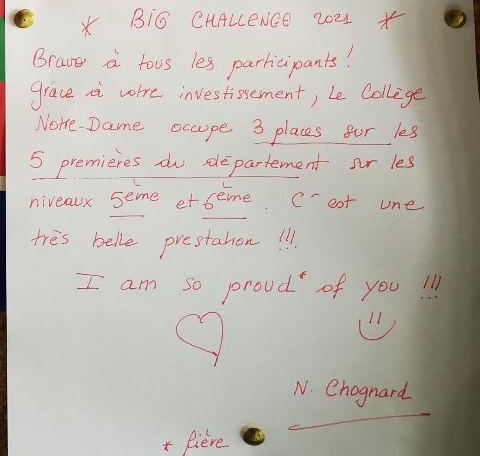 * BIG CHALLENGE 2021 *
Bravo à tous les participants !
Grâce à votre investissement, le Collège
Notre-Dame occupe 3 places sur les
5 premières du département sur les
niveaux 5ème et 6ème. C'est une
très belle prestation !!!
I am so proud* of you !!!
N. Chognard
* fière